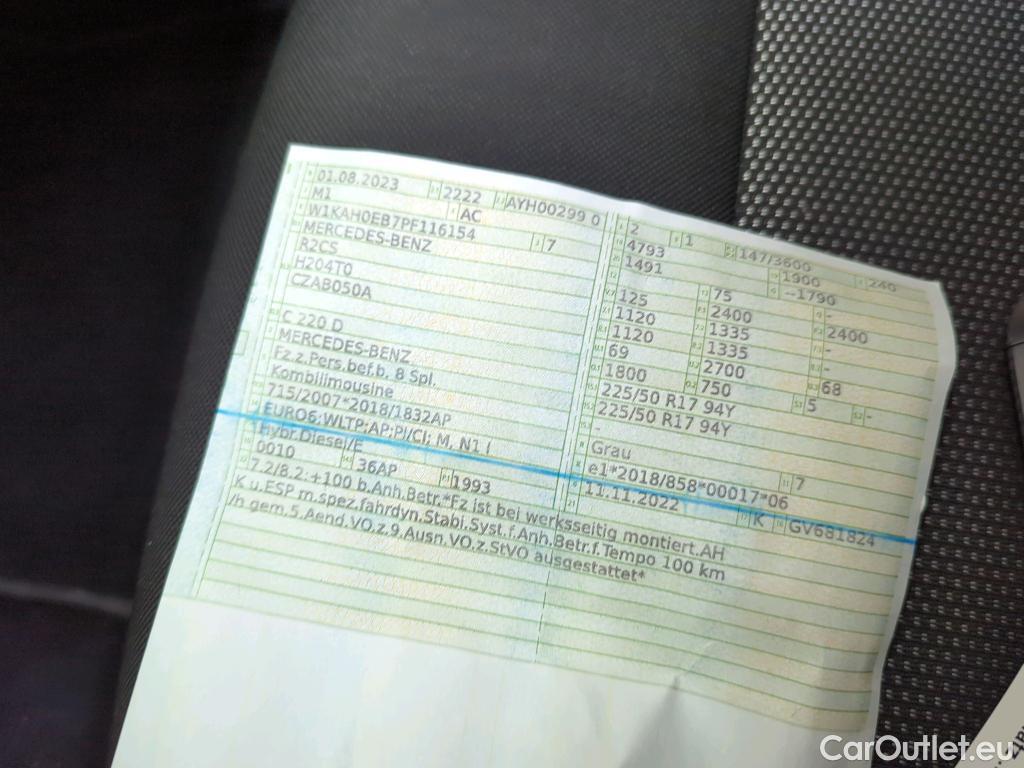 01.08.2023 2222 AYH00299 0
M1 AC
W1KAH0EB7PF116154 7
MERCEDES-BENZ
R2CS
H204T0
CZAB050A
C 220 D
MERCEDES-BENZ
Fz.z.Pers.bef.b. 8 Spl.
Kombilimousine
715/2007*2018/1832AP
EURO6;WLTP;AP;PI/CI; M, N1 I
Hybr.Diesel/E
0010 36AP 1993
2 1 147/3600 240
4793 1900 -
1491 --1790
125 75 -
1120 2400 2400
1120 1335 -
69 1335 -
1800 2700 68
225/50 R17 94Y 750 5 -
225/50 R17 94Y
-
Grau 7
e1*2018/858*00017*06
11.11.2022 K GV681824
7.2/8.2:+100 b.Anh.Betr.*Fz ist bei werksseitig montiert.AH
K u.ESP m.spez.fahrdyn.Stabi.Syst.f.Anh.Betr.f.Tempo 100 km
/h gem.5.Aend.VO.z.9.Ausn.VO.z.StVO ausgestattet*
CarOutlet.eu